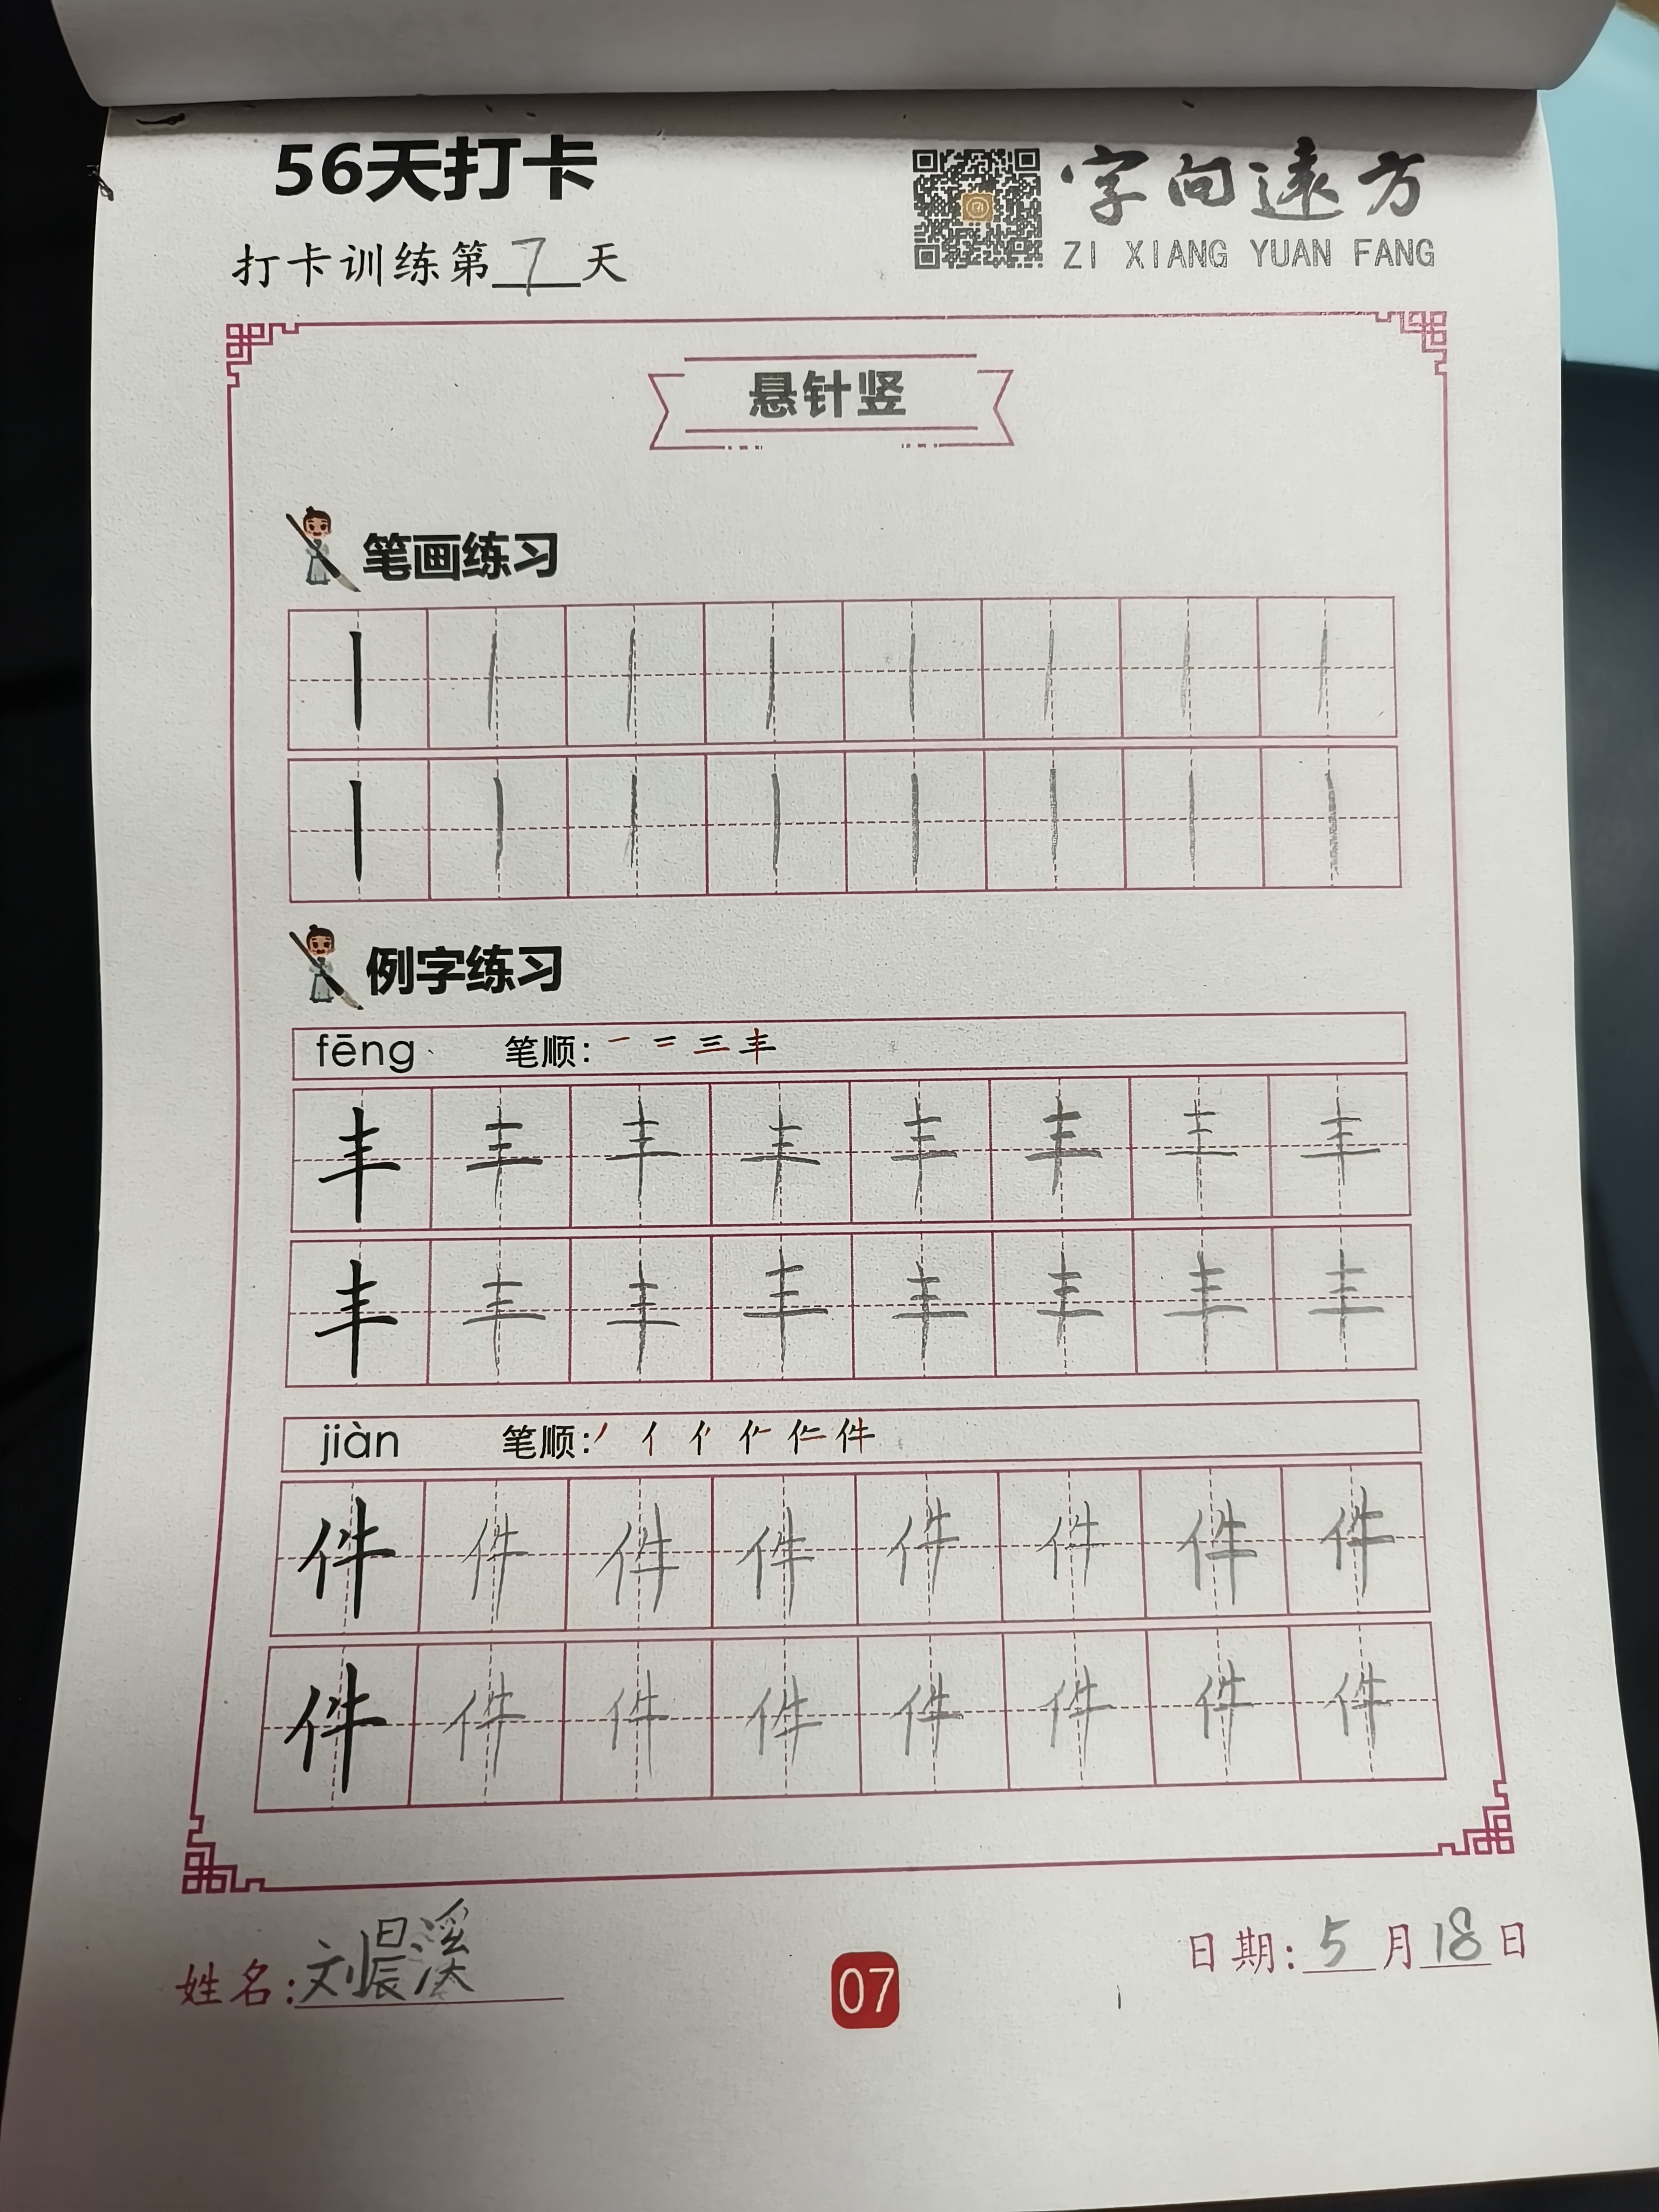 56天打卡
字向远方
ZI XIANG YUAN FANG
打卡训练第7天
悬针竖
笔画练习
丨 丨 丨 丨 丨 丨 丨 丨
丨 丨 丨 丨 丨 丨 丨 丨
例字练习
fēng 笔顺: 一 二 三 丰
丰 丰 丰 丰 丰 丰 丰 丰
丰 丰 丰 丰 丰 丰 丰 丰
jiàn 笔顺: 丿 亻 件
件 件 件 件 件 件 件 件
件 件 件 件 件 件 件 件
姓名: 刘晨溪
07
日期: 5月18日